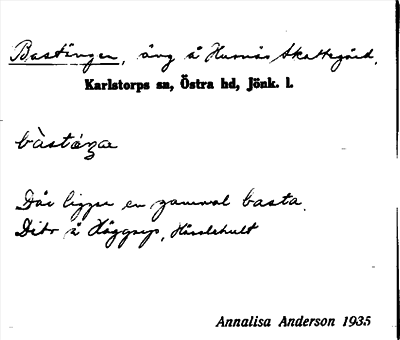 Bastängen, äng å Hurnäs Skattegård,
Karlstorps sn, Östra hd, Jönk. l.
bàstáŋa
Där ligger en gammal basta.
Dito å Häggarp,
Annalisa Anderson 1935